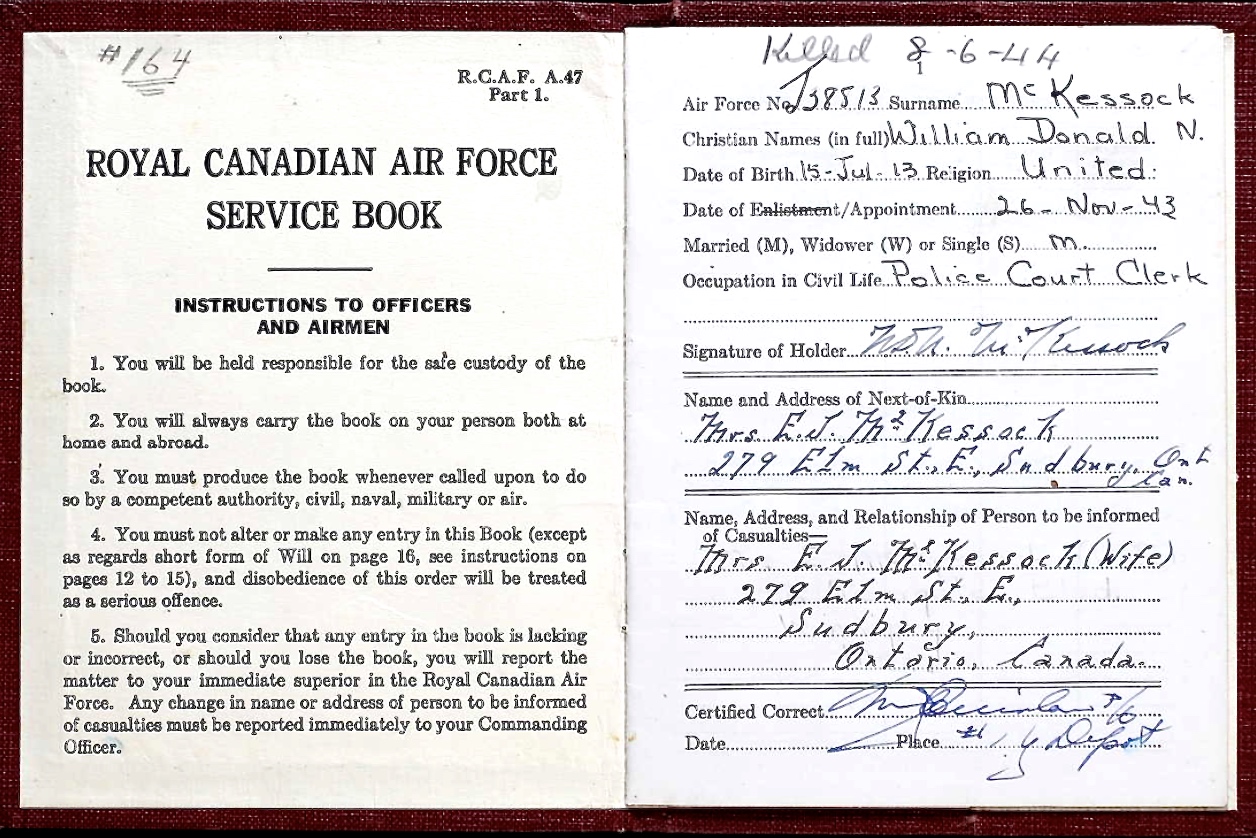 #164
R.C.A.F. A.47
Part 1.
ROYAL CANADIAN AIR FORCE
SERVICE BOOK
INSTRUCTIONS TO OFFICERS
AND AIRMEN
1. You will be held responsible for the safe custody of the
book.
2. You will always carry the book on your person both at
home and abroad.
3. You must produce the book whenever called upon to do
so by a competent authority, civil, naval, military or air.
4. You must not alter or make any entry in this Book (except
as regards short form of Will on page 16, see instructions on
pages 12 to 15), and disobedience of this order will be treated
as a serious offence.
5. Should you consider that any entry in the book is lacking
or incorrect, or should you lose the book, you will report the
matter to your immediate superior in the Royal Canadian Air
Force. Any change in name or address of person to be informed
of casualties must be reported immediately to your Commanding
Officer.
Killed 8-6-44
Air Force No. J38513 Surname McKessock
Christian Names (in full) William Donald N.
Date of Birth 15-Jul-13 Religion United.
Date of Enlistment/Appointment 26-Nov-43
Married (M), Widower (W) or Single (S) m.
Occupation in Civil Life Police Court Clerk
Signature of Holder W.D.N. McKessock
Name and Address of Next-of-Kin
Mrs. E.J. McKessock
279 Elm St., E., Sudbury, Ont
Can.
Name, Address, and Relationship of Person to be informed
of Casualties—
Mrs E.J. McKessock (Wife)
279 Elm St., E.,
Sudbury,
Ontario, Canada.
Certified Correct
Date Place #1 Y Depot